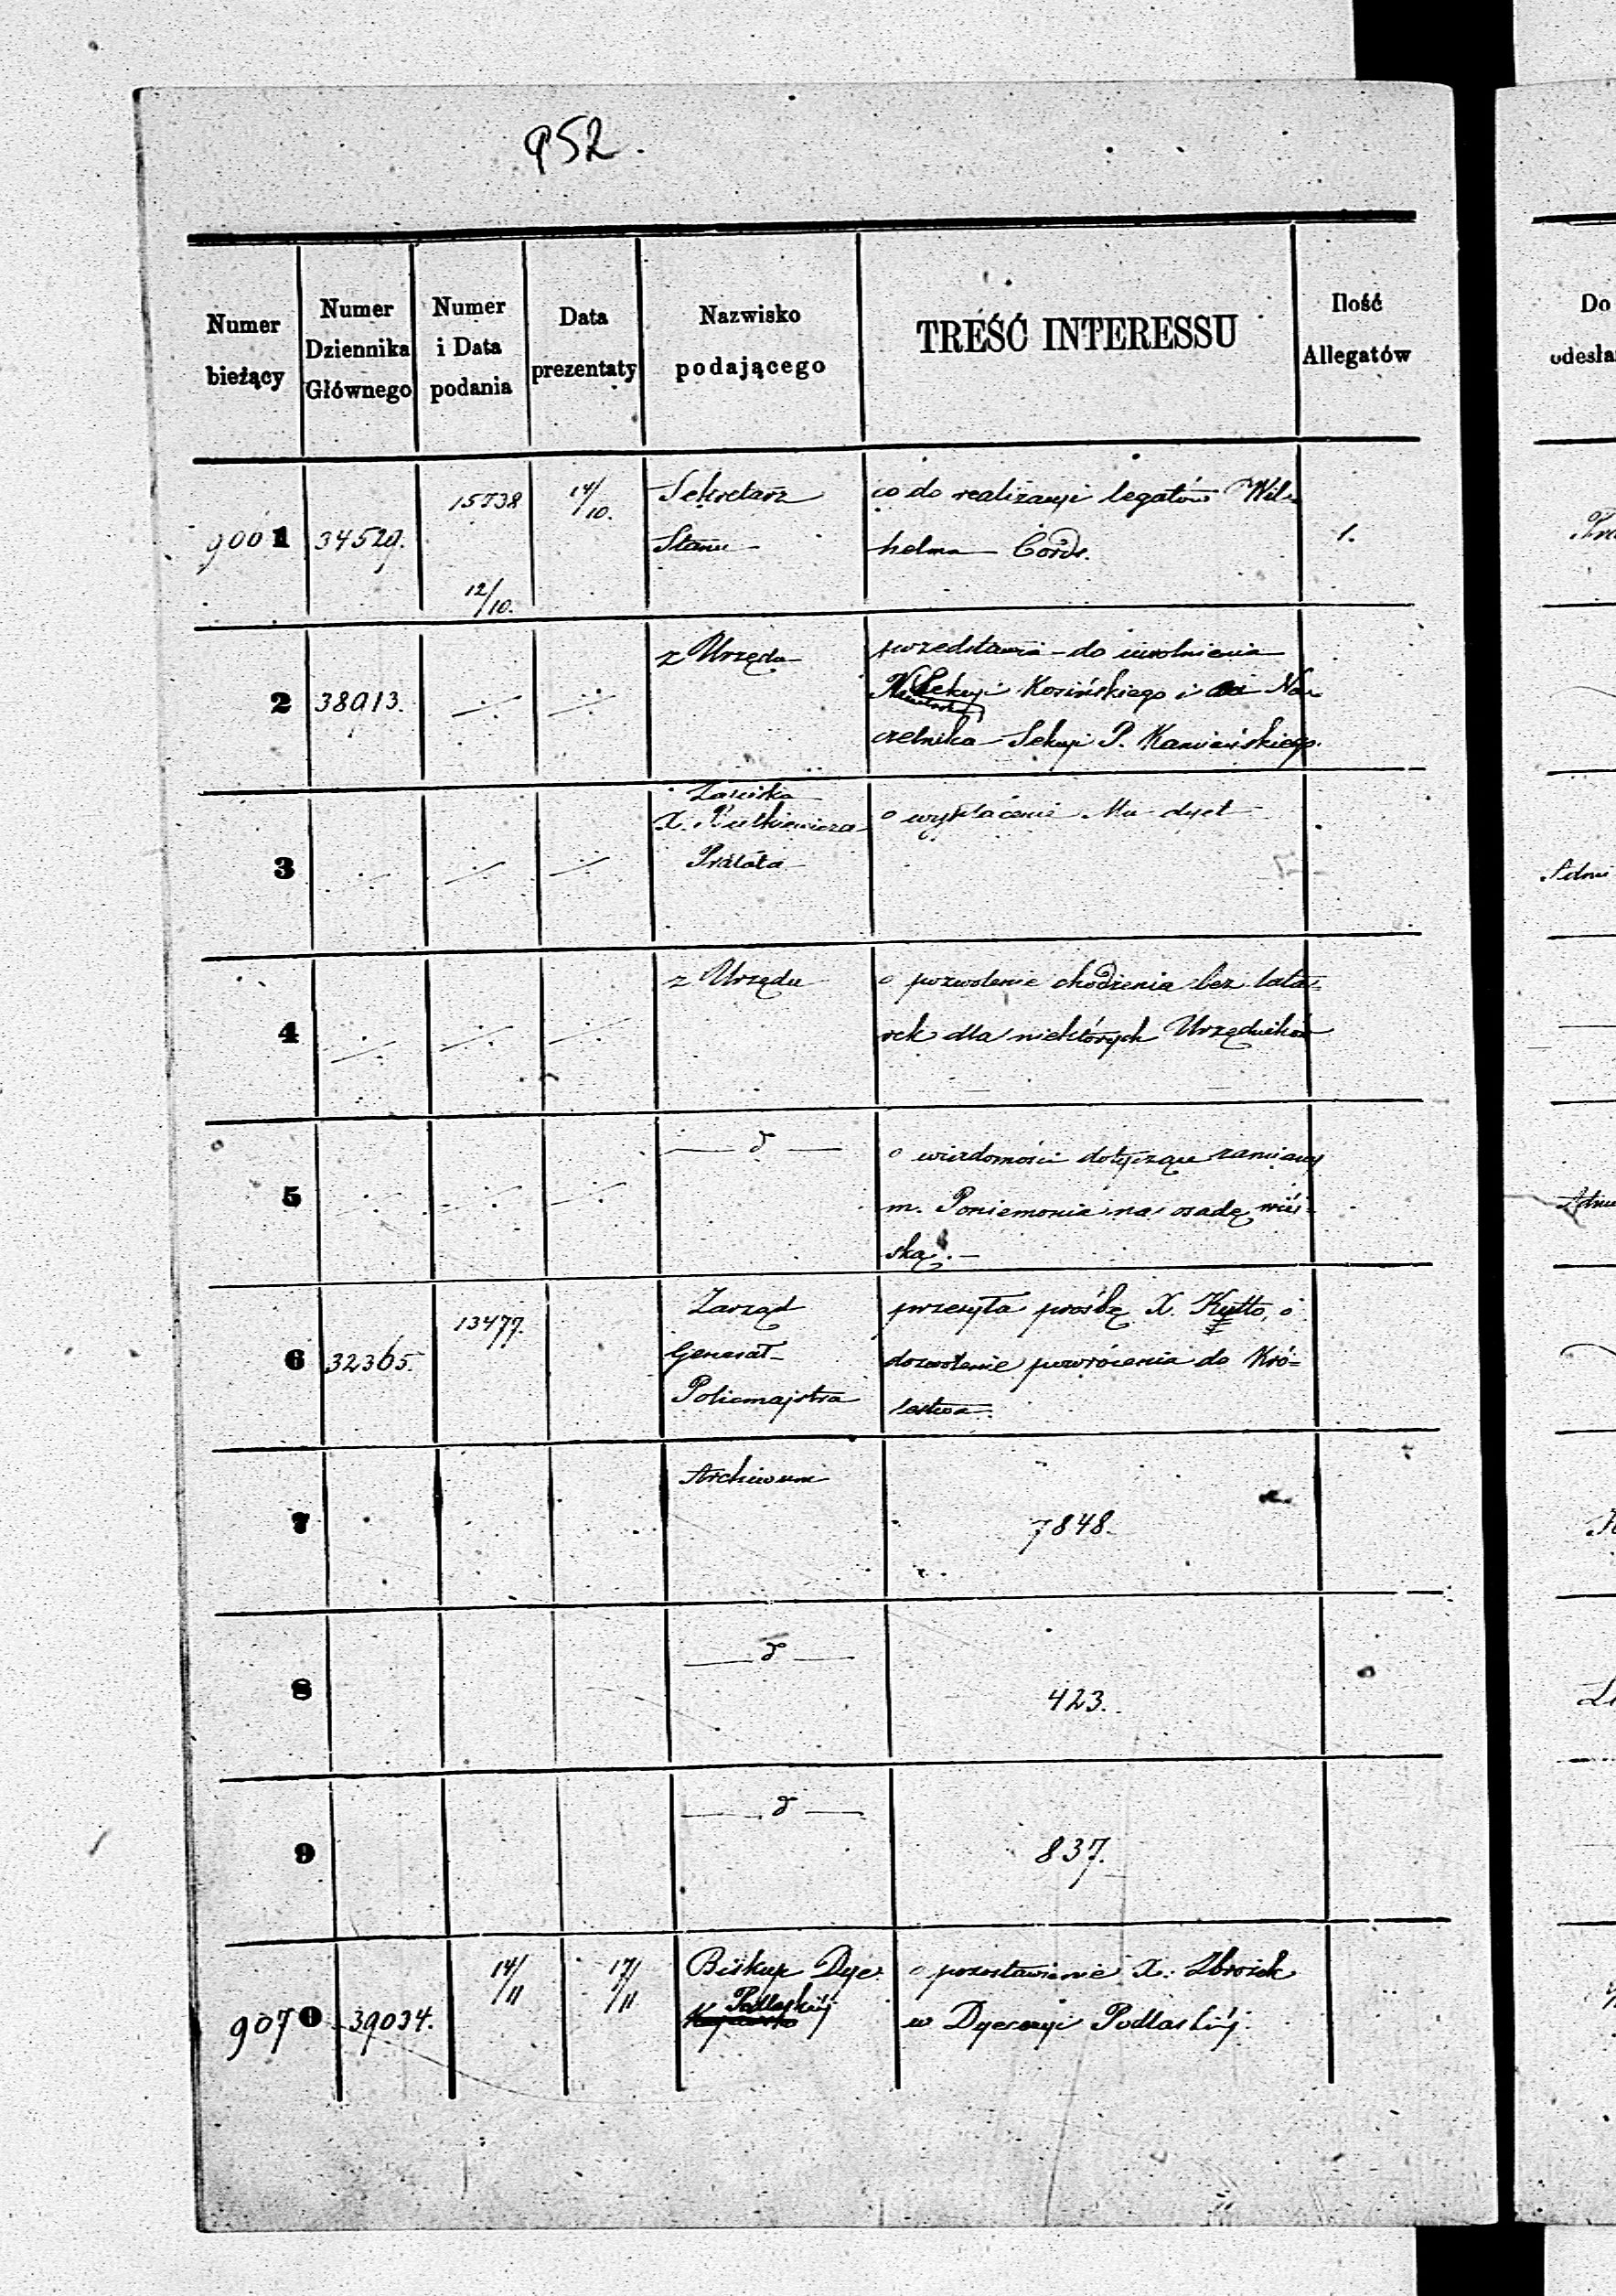 952.
Numer bieżący
Numer Dziennika Głównego
Numer i Data podania
Data prezentaty
Nazwisko podającego
TREŚĆ INTERESSU
Ilość Allegatów
9001 34529. 15738 12/10. 14/10. Sekretarz co do realizacyi legatów Wil-
Stanu helma Cords. 1.
2 38913. z Urzędu przedstawia do uwolnienia
Sekcyi Kosińskiego i Na-
czelnika Sekcyi P.
3 X. o wypłacenie Mu dyet
Prałata
4 z Urzędu o pozwolenie chodzenia bez lata-
rek dla niektórych Urzędników
5 d o wiadomości dotyczące zamiany
m. Poniemonia na osadę wiej-
ską.
6 32365. 13477. Zarząd przesyła prośbę X. Kytto, o
Generał- dozwolenie powrócenia do Kró-
Policmajstra lestwa.
7 Archiwum 7848.
8 d 423.
9 d 837.
9070 39034. 14/11 17/11 Biskup Dye. o pozostawienie X. Zbroiek
Podlaskiéj w Dyecezyi Podlaskiéj.
Do
odesła